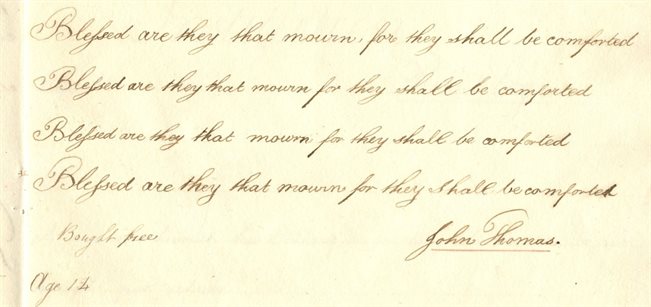 Blessed are they that mourn, for they shall be comforted
Blessed are they that mourn for they shall be comforted
Blessed are they that mourn for they shall be comforted
Blessed are they that mourn for they shall be comforted
Bought free
John Thomas.
Age 14